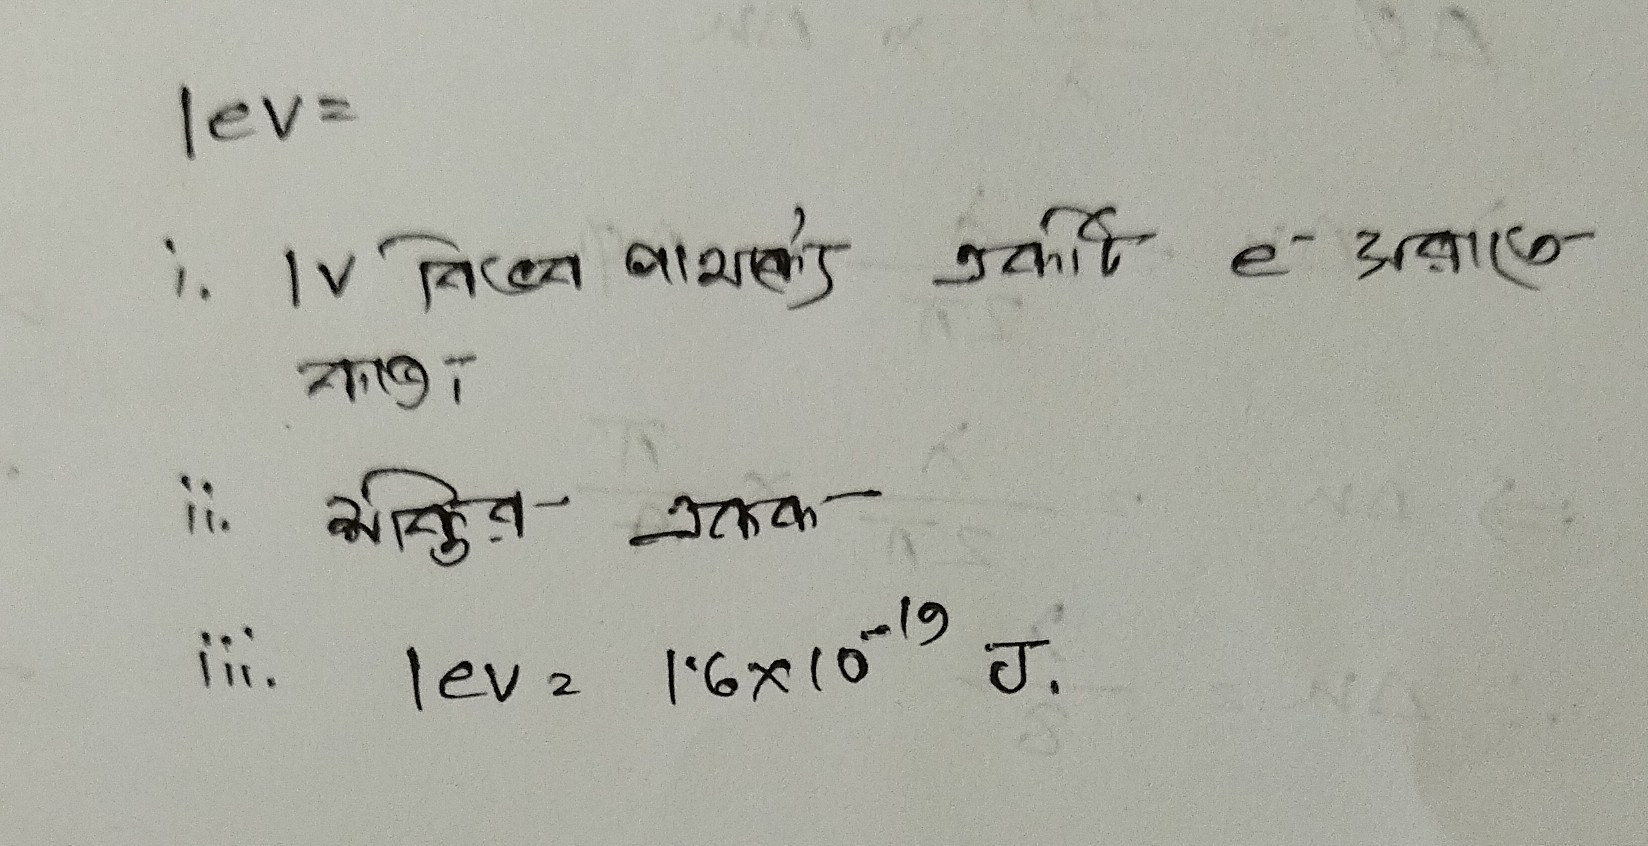 1ev=
i. 1V বিভব পার্থক্যে একটি e⁻ সরাতে
কাজ।
ii. শক্তির একক
iii. 1ev = 1.6×10⁻¹⁹ J.